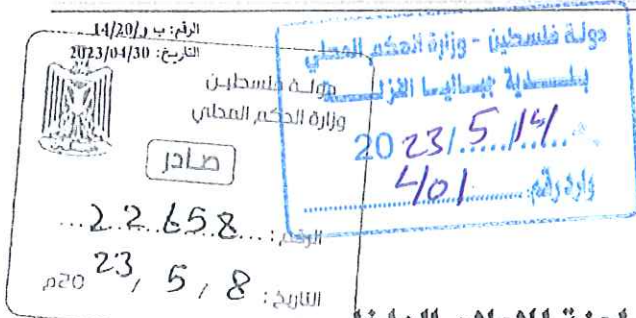 الرقم: ب ر/14/20
التاريخ: 2023/04/30
دولة فلسطين
وزارة الحكم المحلي
صادر
الرقم: 22658
التاريخ: 8 / 5 / 23 20م
دولة فلسطين - وزارة الحكم المحلي
بلدية جباليا النزلة
2023/5/14
وارد رقم: 401